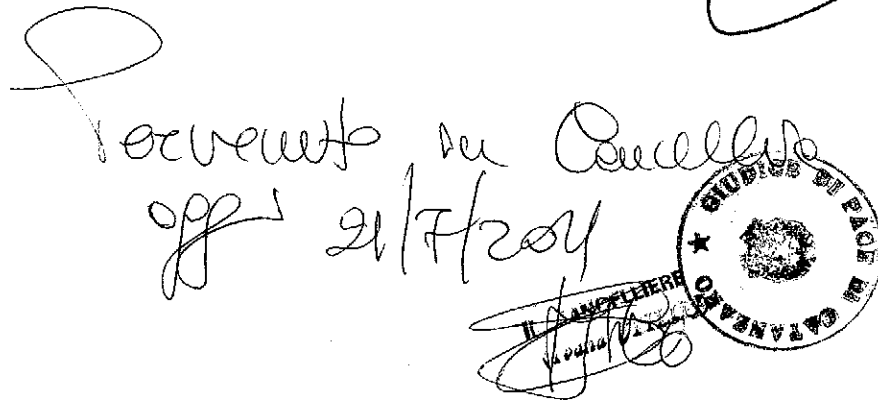 Pervenuto in Cancelleria
oggi 21/7/2011
★ GIUDICE DI PACE DI CATANZARO
IL CANCELLIERE